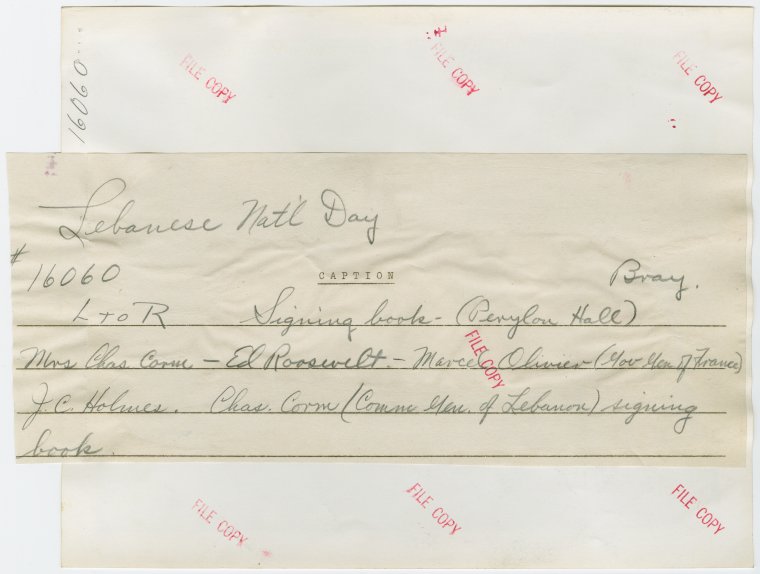 16060
FILE COPY
FILE COPY
FILE COPY
Lebanese Nat'l Day
#16060
CAPTION
Bray.
L to R Signing book - (Perylon Hall)
Mrs Chas Corm - Ed Roosevelt - Marcel Olivier (Gov Gen of France)
FILE COPY
J.C. Holmes. Chas. Corm (Comm Gen. of Lebanon) signing
book.
FILE COPY
FILE COPY
FILE COPY